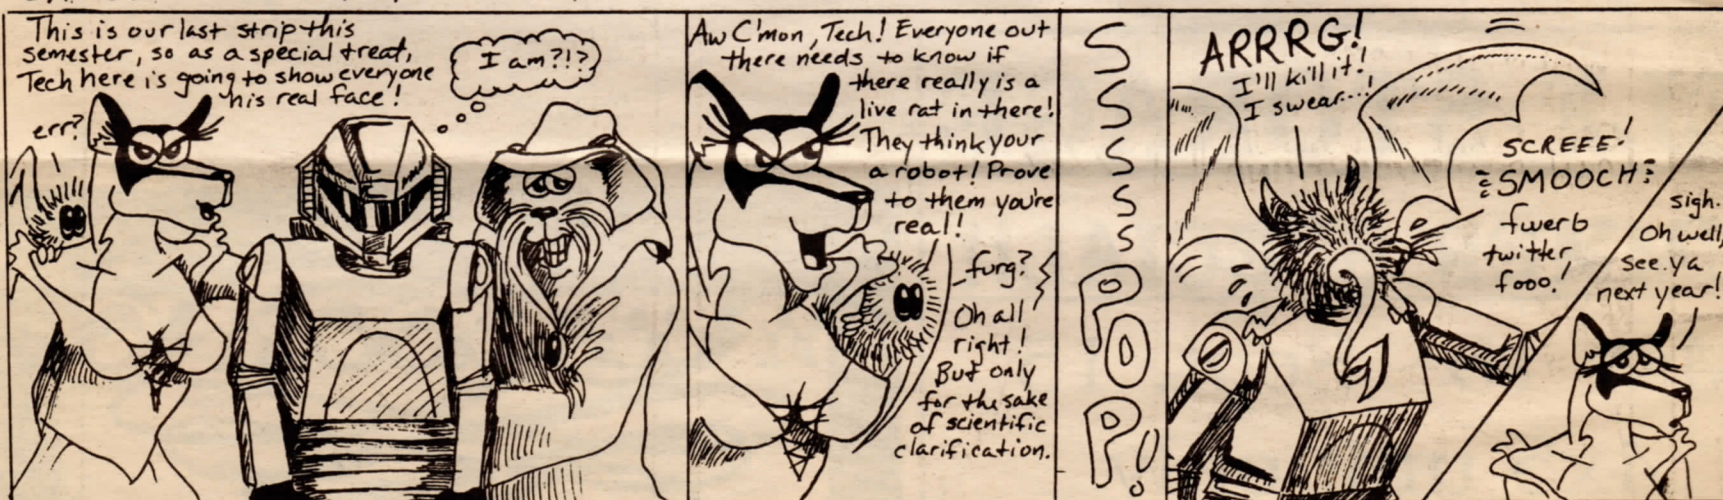 This is our last strip this
semester, so as a special treat,
Tech here is going to show everyone
his real face!
I am?!?
err?
Aw C'mon, Tech! Everyone out
there needs to know if
there really is a
live rat in there!
They think your
a robot! Prove
to them you're
real!
furg?
Oh all
right!
But only
for the sake
of scientific
clarification.
SSSSS
POP!
ARRRG!
I'll kill it!
I swear...!
SCREEE!
SMOOCH!
fwerb
twitter
fooo!
sigh.
Oh well,
see ya
next year!